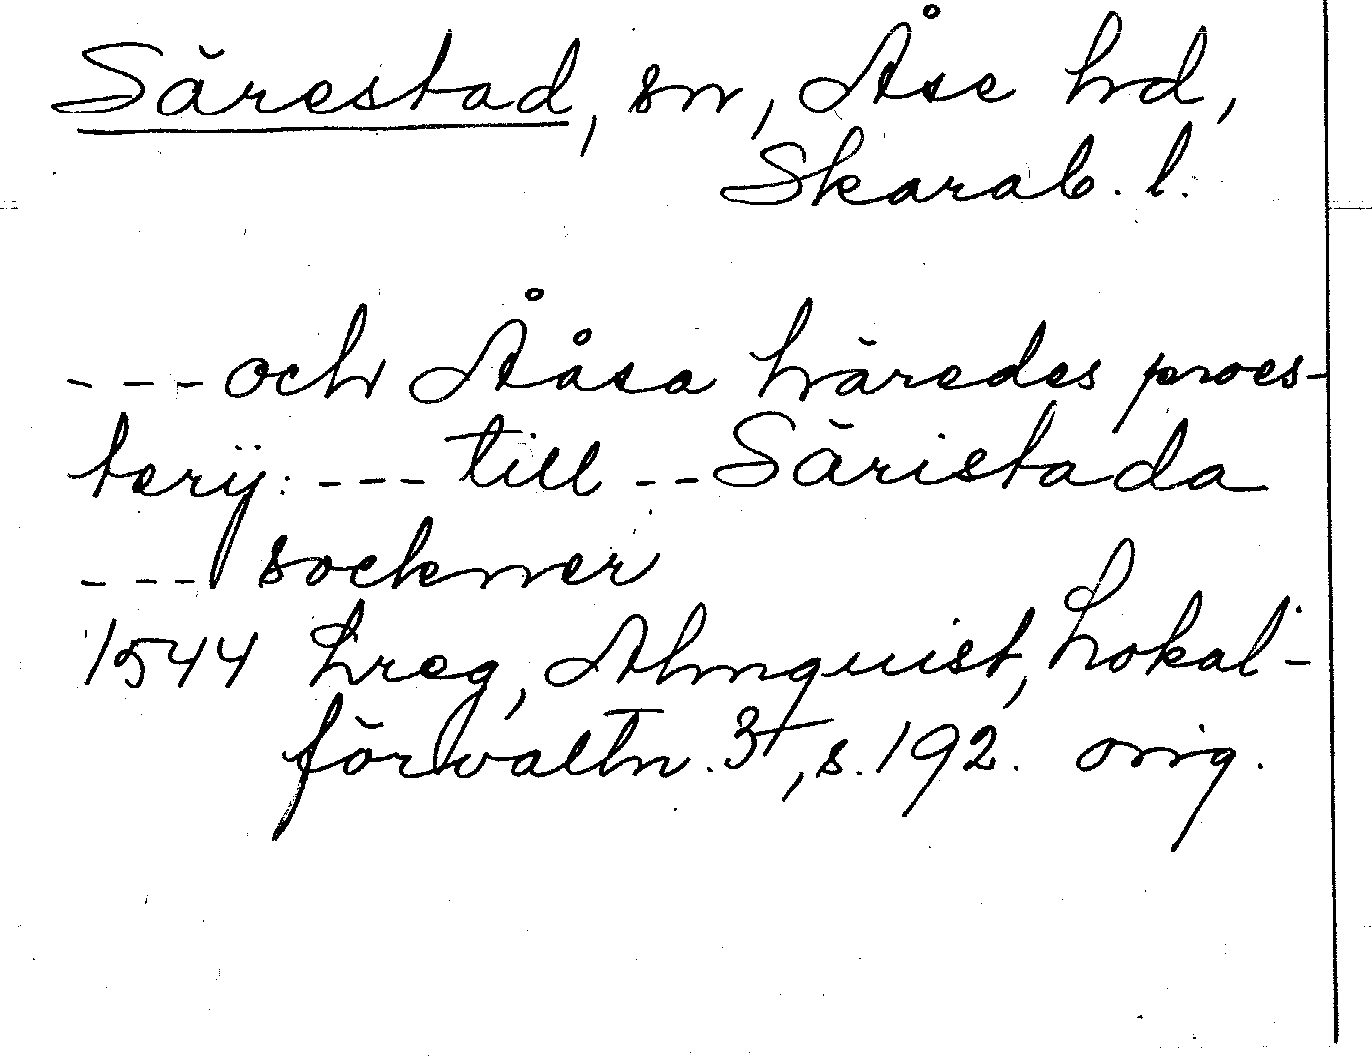 Särestad, sn, Åse hd,
Skarab. l.
---och Ååsa häredes proes-
terÿ: --- till --Säristada
--- sockner
1544 Lreg, Almquist, Lokal-
förvaltn. 3, s. 192. orig.